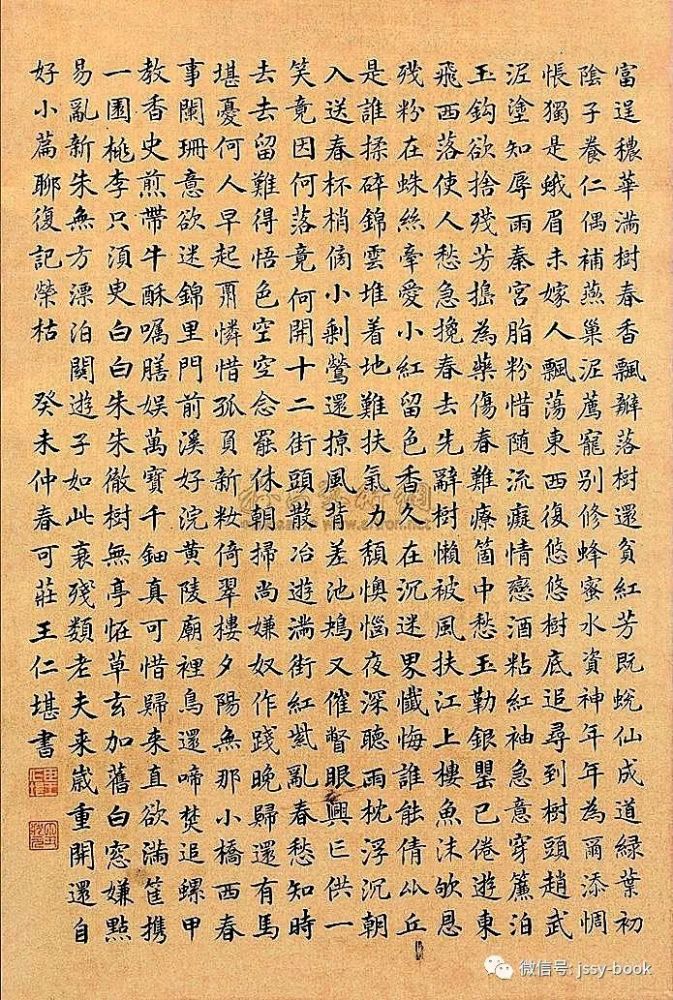 富逞穠華滿樹春香飄瓣落樹還貧紅芳既蛻仙成道綠葉初
陰子養仁偶補燕巢泥薦寵別修蜂蜜水資神年年為爾添惆
悵獨是蛾眉未嫁人飄蕩東西復悠悠樹底追尋到樹頭趙武
泥塗知辱雨秦宮脂粉惜隨流癡情戀酒粘紅袖急意穿簾泊
玉鈎欲捨殘芳搗為藥傷春難療箇中愁玉勒銀罌已倦遊東
飛西落使人愁急攙春去先辭樹懶被風扶江上樓魚沫欨恩
殘粉在蛛絲牽愛小紅留色香久在沉迷界懺悔誰能倩比丘
是誰揉碎錦雲堆着地難扶氣力頹懊惱夜深聽雨枕浮沉朝
入送春杯梢傍小剩鶯還掠風背差池鳩又催瞥眼興亡供一
笑竟因何落竟何開十二街頭散冶遊滿街紅紫亂春愁知時
去去留難得悟色空空念罷休朝掃尚嫌奴作踐晚歸還有馬
堪憂何人早起憐惜孤負新妝倚翠樓夕陽無那小橋西春
事闌珊意欲迷錦里門前溪好浣黃陵廟裡鳥還啼焚追螺甲
教香史煎帶牛酥囑膳娛萬寶千鈿真可惜歸來直欲滿筐攜
一園桃李只須臾白白朱朱徹樹無亭怪草玄加舊白窓嫌點
易亂新朱無方漂泊關遊子如此衰殘類老夫來歲重開還自
好小篇聊復記榮枯 癸未仲春可莊王仁堪書
微信号: jssy-book